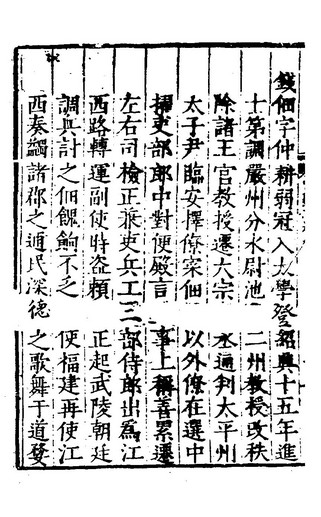 錢佃字仲耕弱冠入太學登紹興十五年進
士第調嚴州分水尉池二州教授改秩
除諸王宮教授遷六宗丞通判太平州
太子尹臨安擇僚寀佃以外僚在選中
擢吏部郎中對便殿言事上稱善累遷
左右司檢正兼吏兵工二部侍郎出為江
西路轉運副使時盗賴正起武陵朝廷
調兵討之佃餽餉不乏使福建再使江
西奏蠲諸郡之逋民深德之歌舞于道婺